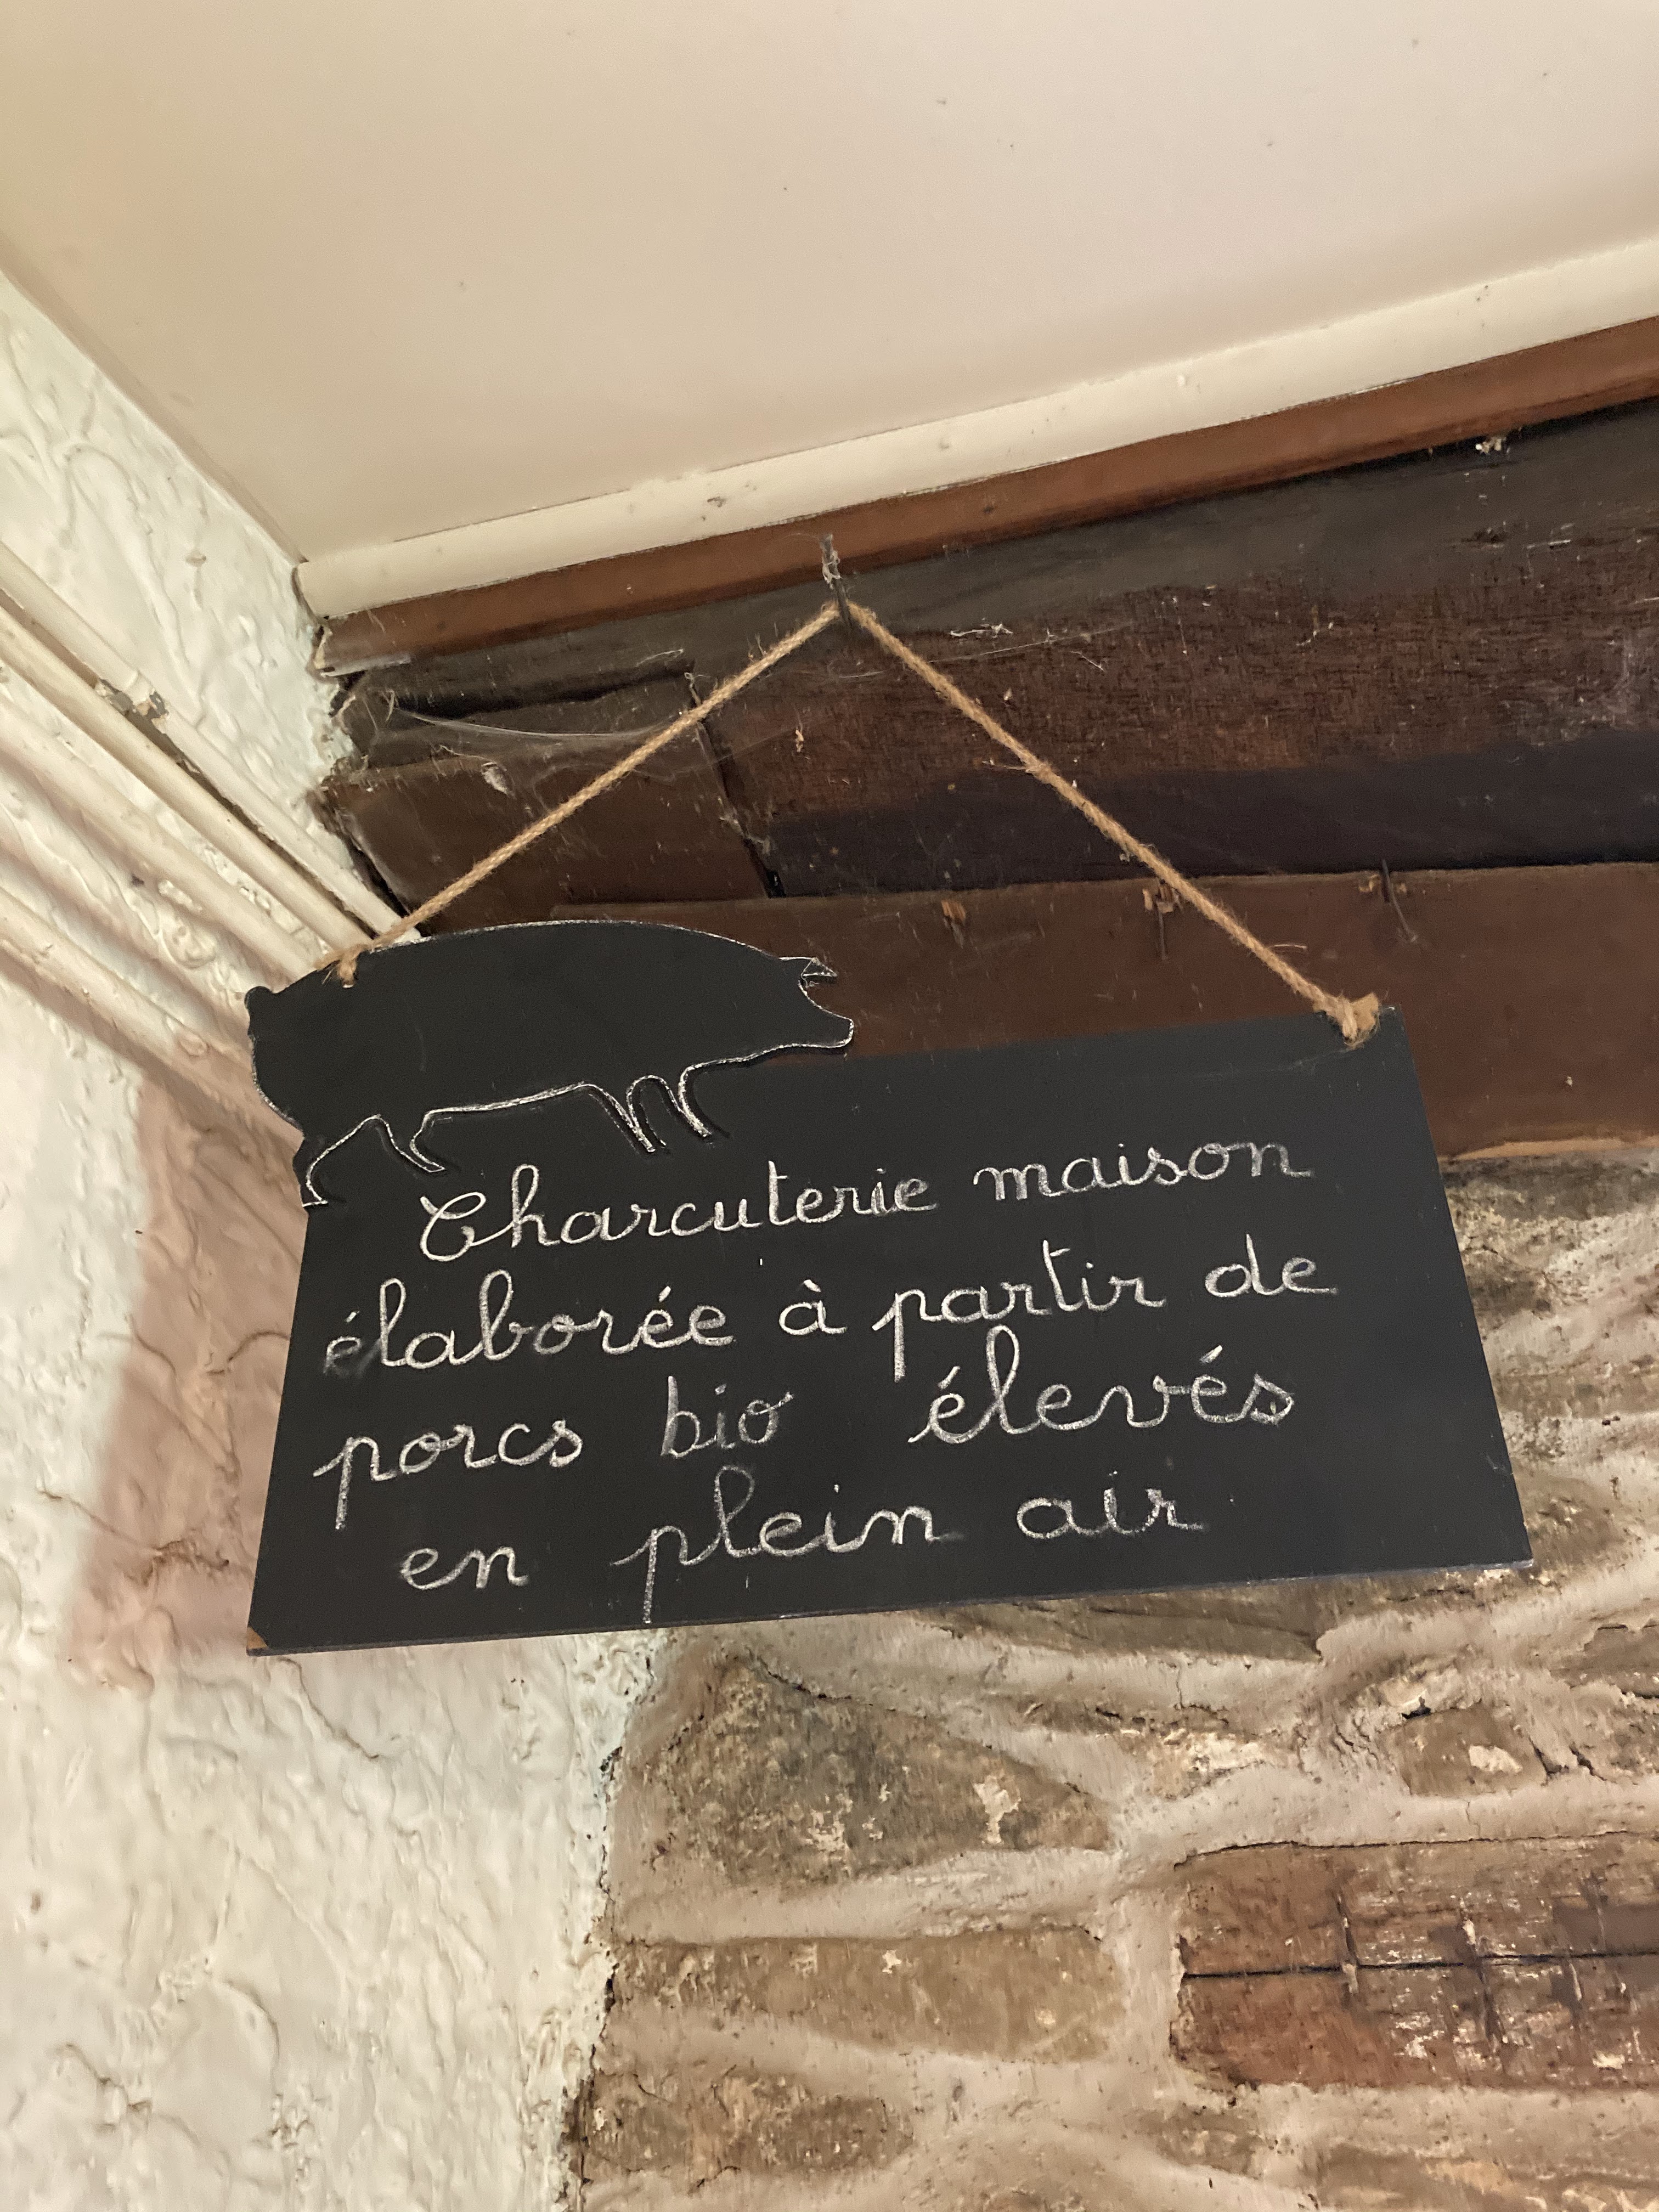 Charcuterie maison
élaborée à partir de
porcs bio élevés
en plein air